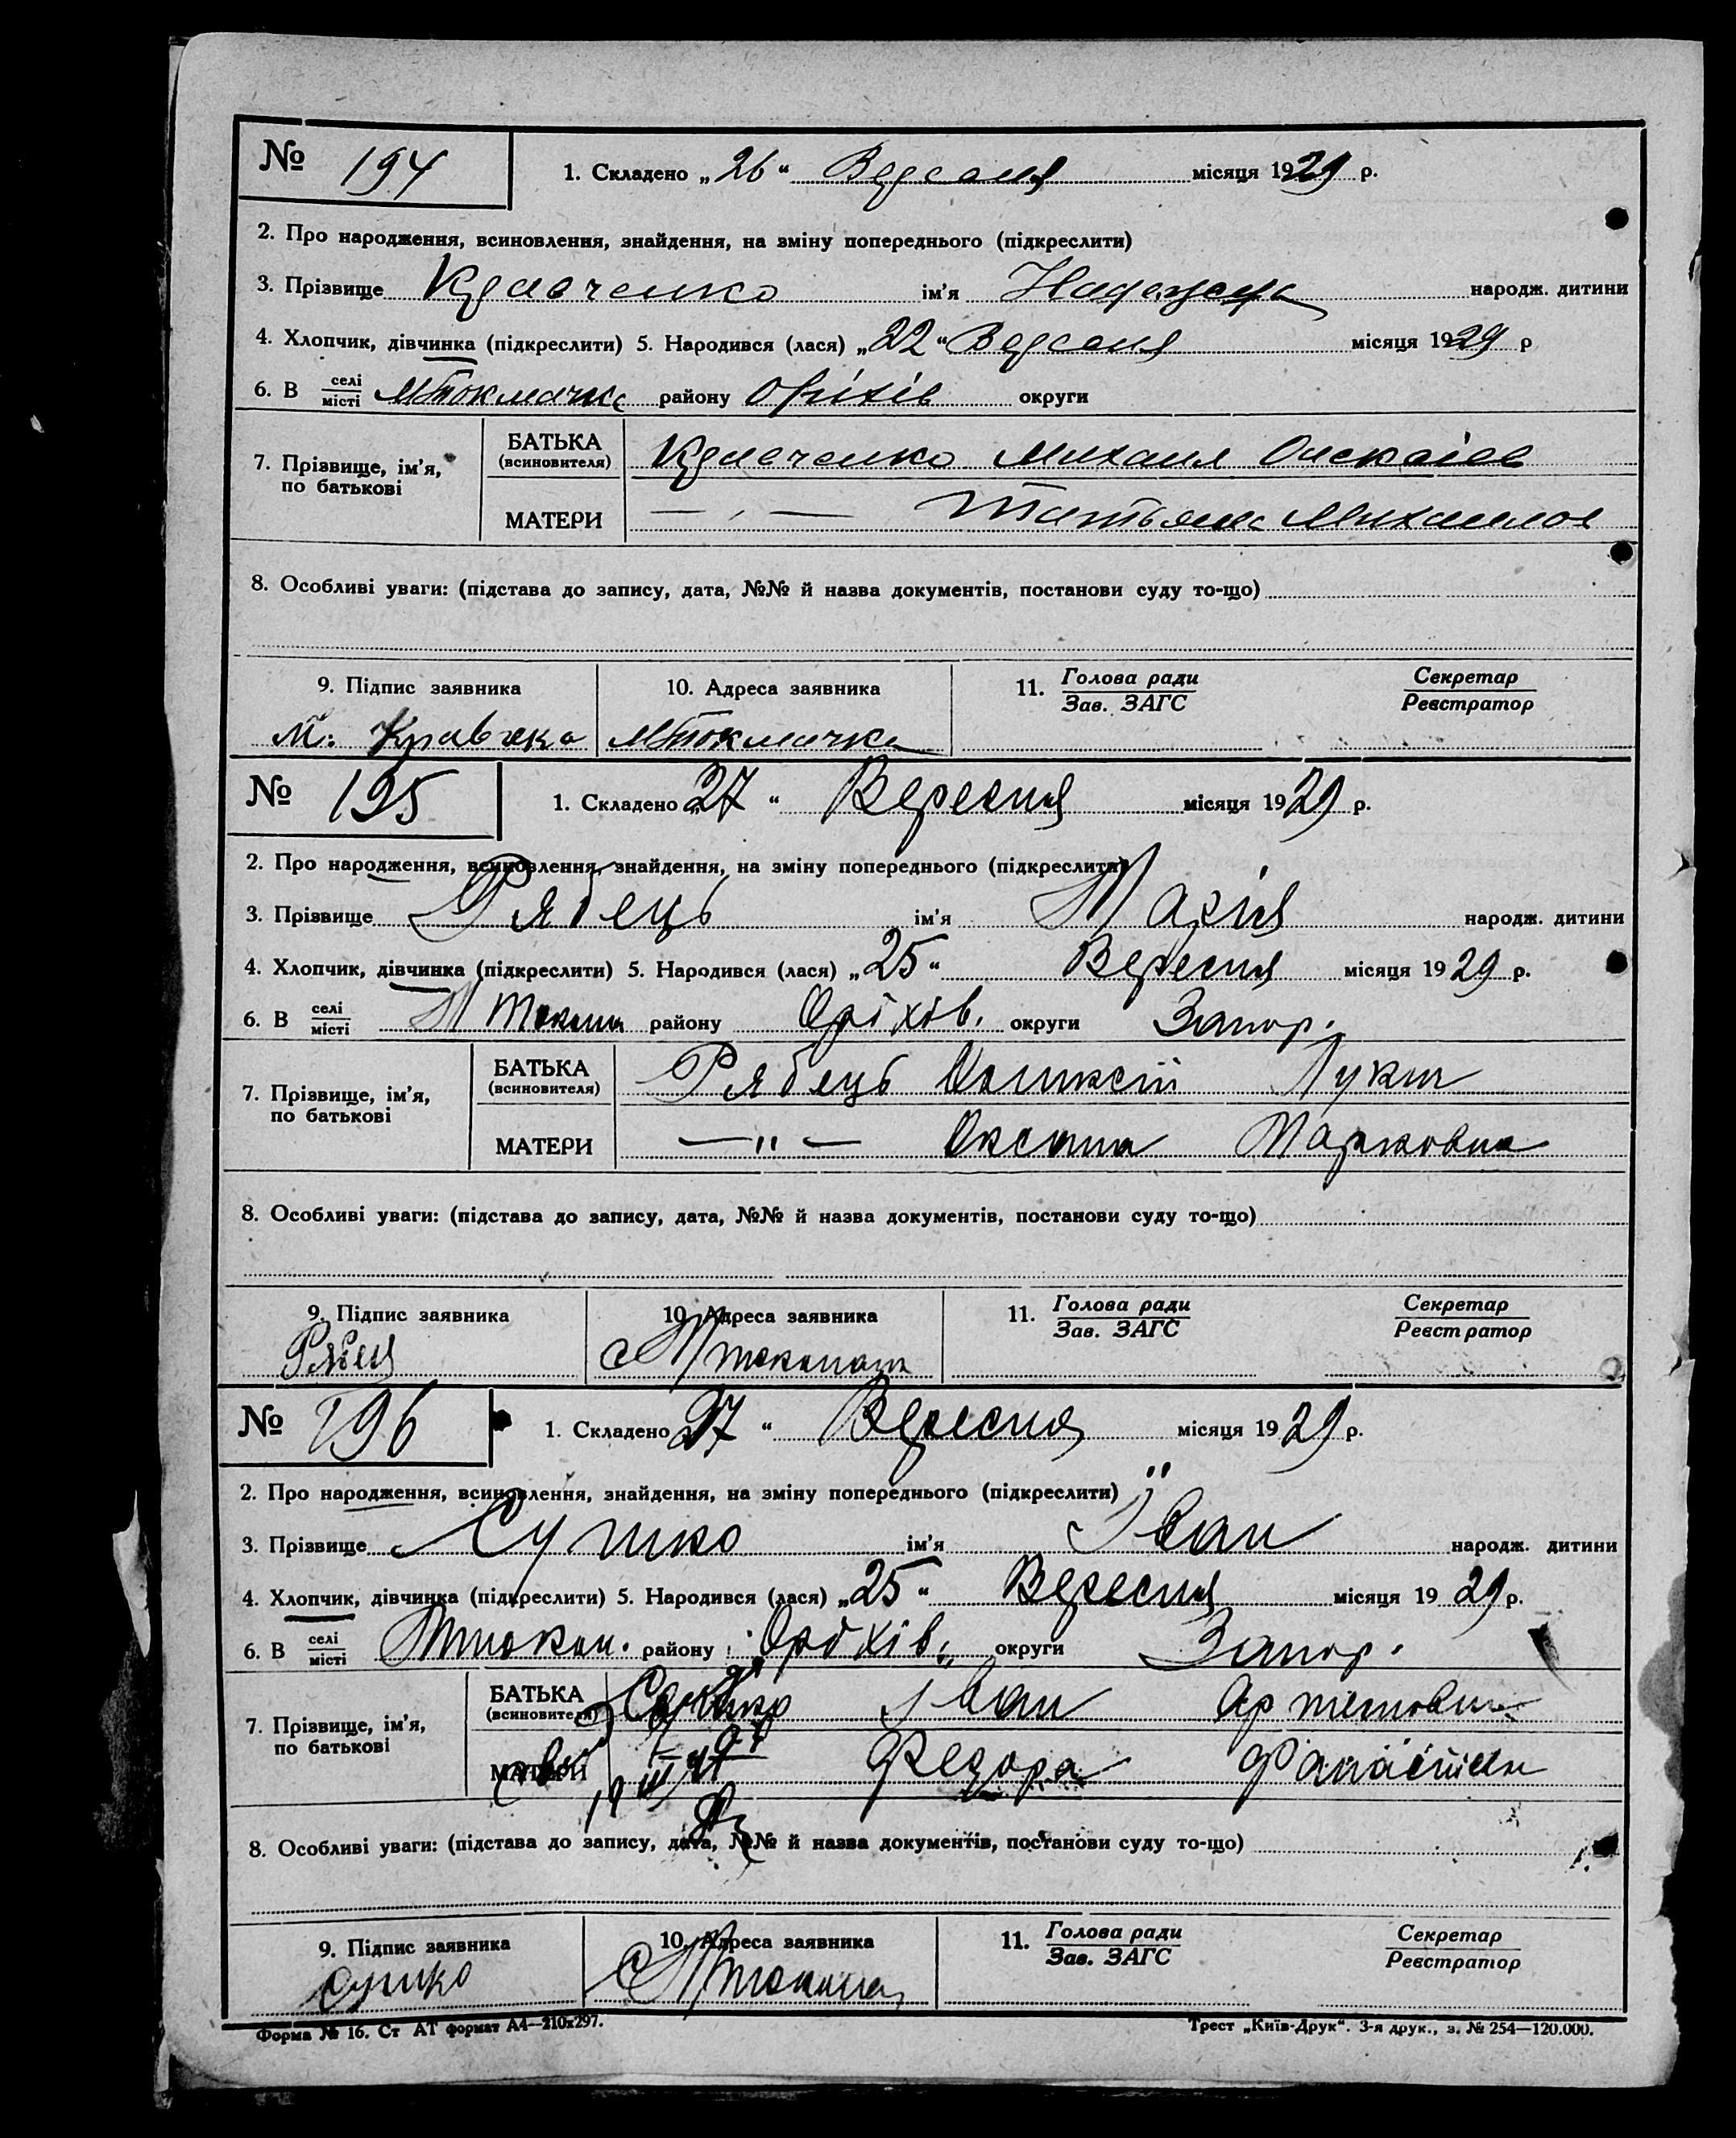 № 194 1. Складено „26“ Вересня місяця 1929 р.
2. Про народження, всиновлення, знайдення, на зміну попереднього (підкреслити)
3. Прізвище Кравченко ім'я Надежда народж. дитини
4. Хлопчик, дівчинка (підкреслити) 5. Народився (лася) „22“ Вересня місяця 1929 р
6. В селі місті МТокмачка району Оріхів округи
7. Прізвище, ім'я, по батькові
БАТЬКА (всиновителя) Кравченко Михаил Олексіев
МАТЕРИ — „ — Татьяна Михайлов
8. Особливі уваги: (підстава до запису, дата, №№ й назва документів, постанови суду то-що)
9. Підпис заявника 10. Адреса заявника 11. Голова ради Зав. ЗАГС Секретар Реєстратор
М. Кравчко МТокмачка
№ 195 1. Складено „27“ Вересня місяця 1929 р.
2. Про народження, всиновлення, знайдення, на зміну попереднього (підкреслити)
3. Прізвище Рябець ім'я Марія народж. дитини
4. Хлопчик, дівчинка (підкреслити) 5. Народився (лася) „25“ Вересня місяця 1929 р.
6. В селі місті М Токмач району Оріхів. округи Запор.
7. Прізвище, ім'я, по батькові
БАТЬКА (всиновителя) Рябець Лукич
МАТЕРИ — „ — Оксана Марковна
8. Особливі уваги: (підстава до запису, дата, №№ й назва документів, постанови суду то-що)
9. Підпис заявника 10. Адреса заявника 11. Голова ради Зав. ЗАГС Секретар Реєстратор
Рябец
№ 196 1. Складено „27“ Вересня місяця 1929 р.
2. Про народження, всиновлення, знайдення, на зміну попереднього (підкреслити)
3. Прізвище Сушко ім'я Іван народж. дитини
4. Хлопчик, дівчинка (підкреслити) 5. Народився (лася) „25“ Вересня місяця 1929 р.
6. В селі місті МТокм. району Оріхів. округи Запор.
7. Прізвище, ім'я, по батькові
БАТЬКА (всиновителя) Сушко Іван Артемович
МАТЕРИ Федора
8. Особливі уваги: (підстава до запису, дата, №№ й назва документів, постанови суду то-що)
9. Підпис заявника 10. Адреса заявника 11. Голова ради Зав. ЗАГС Секретар Реєстратор
Сушко
Форма № 16. Ст АТ формат А4—210х297. Трест „Київ-Друк“. 3-я друк., з. № 254—120.000.